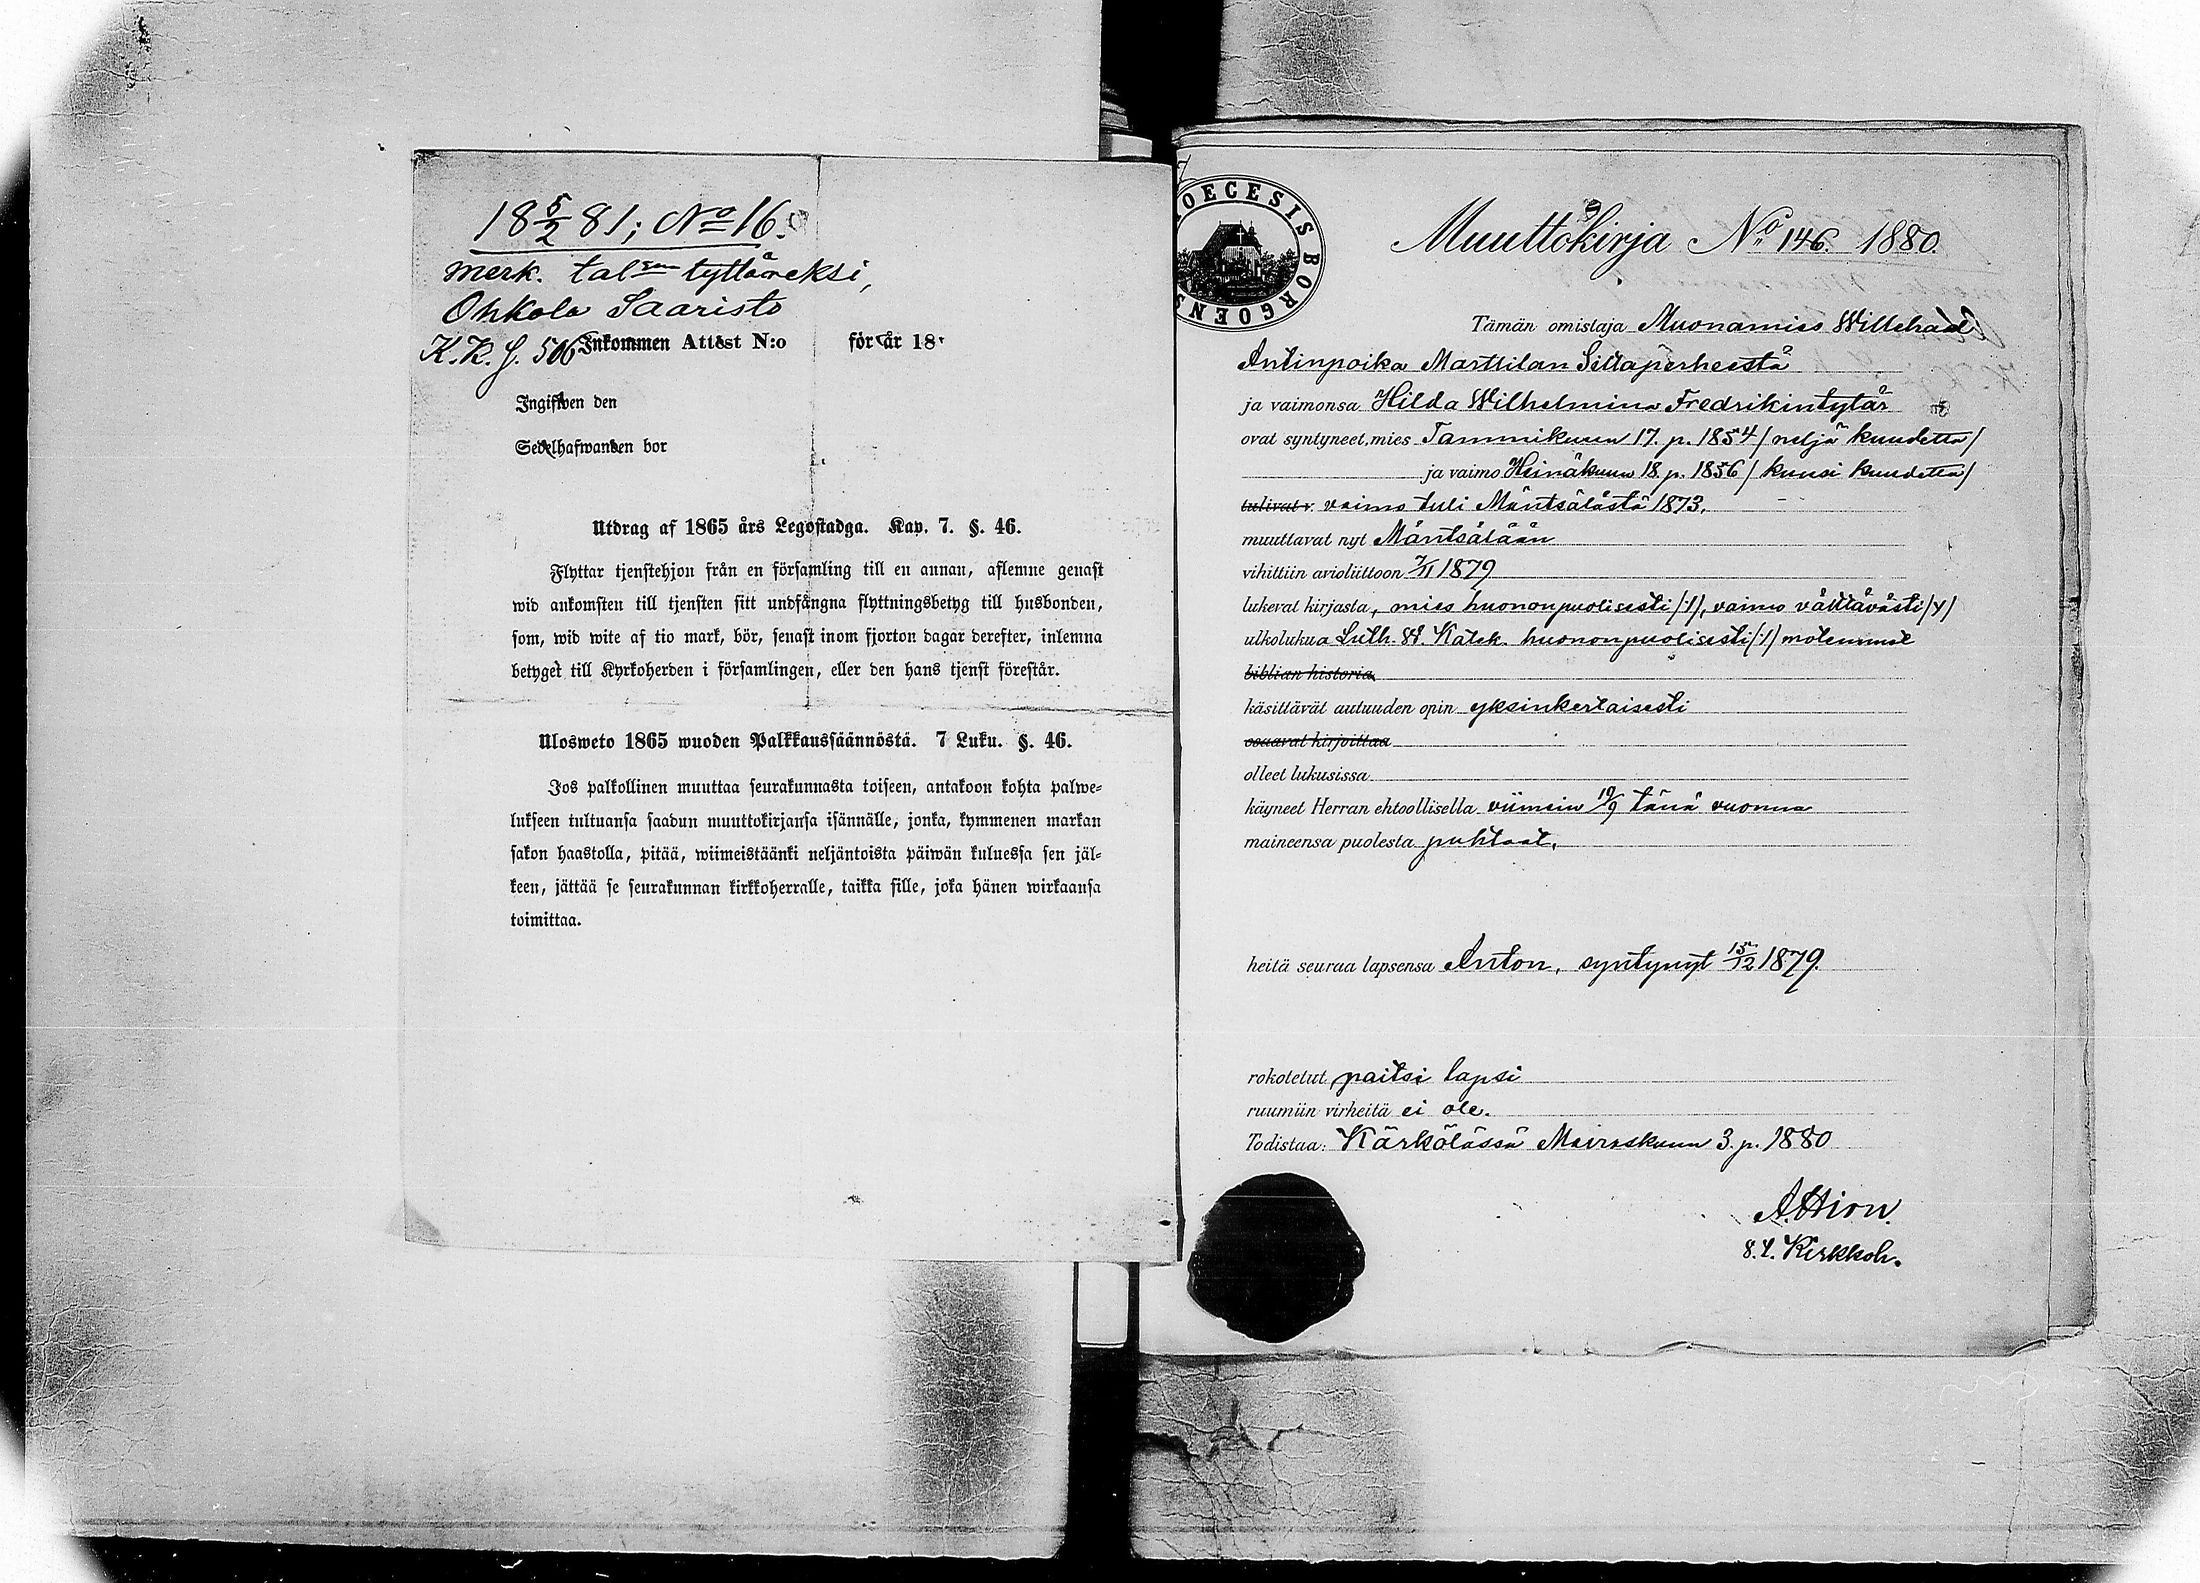 18 5/2 81; No 16.
merk. tal:en tyttäreksi,
Ohkola Saaristo
K.K.S. 506
Inkommen Attest N:o för år 18
Ingifwen den
Sedelhafwanden bor
Utdrag af 1865 års Legostadga. Kap. 7. §. 46.
Flyttar tjenstehjon från en församling till en annan, aflemne genast
wid ankomsten till tjensten sitt undfångna flyttningsbetyg till husbonden,
som, wid wite af tio mark, bör, senast inom fjorton dagar derefter, inlemna
betyget till Kyrkoherden i församlingen, eller den hans tjenst förestår.
Ulosweto 1865 wuoden Palkkaussäännöstä. 7 Luku. §. 46.
Jos palkollinen muuttaa seurakunnasta toiseen, antakoon kohta palwe-
lukseen tultuansa saadun muuttokirjansa isännälle, jonka, kymmenen markan
sakon haastolla, pitää, wiimeistäänki neljäntoista päiwän kuluessa sen jäl-
keen, jättää se seurakunnan kirkkoherralle, taikka sille, joka hänen wirkaansa
toimittaa.
DIOECESIS BORGOENSIS
Muuttokirja No 146. 1880.
Tämän omistaja Muonamies Willehad
Antinpoika Marttilan Siltaperheestä
ja vaimonsa Hilda Wilhelmina Fredrikintytär
ovat syntyneet, mies Tammikuun 17. p. 1854 /neljä kuudetta/
ja vaimo Heinäkuun 18. p. 1856 /kuusi kuudetta/
tulivat v. vaimo tuli Mäntsälästä 1873.
muuttavat nyt Mäntsälään
vihittiin avioliittoon 7/11 1879
lukevat kirjasta, mies huononpuolisesti /1/, vaimo välttävästi /y/
ulkolukua Luth. W. Katek. huononpuolisesti /1/ molemmat
biblian historia
käsittävät autuuden opin yksinkertaisesti
osaavat kirjoittaa
olleet lukusissa
käyneet Herran ehtoollisella viimein 19/9 tänä vuonna
maineensa puolesta puhtaat.
heitä seuraa lapsensa Anton, syntynyt 15/12 1879.
rokotetut paitsi lapsi
ruumiin virheitä ei ole.
Todistaa: Kärkölässä Marraskuun 3. p. 1880
A. Hion.
v.t. Kirkkoh.